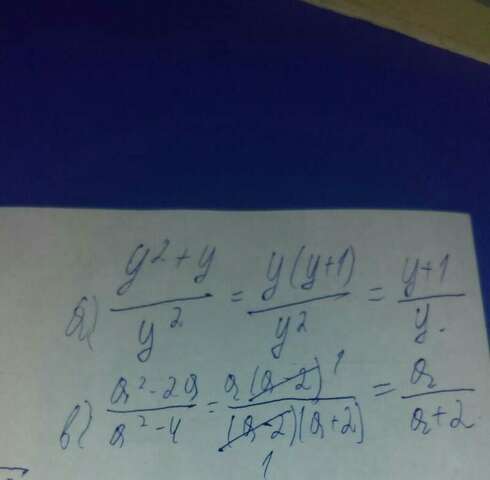 а) (y²+y)/y² = y(y+1)/y² = (y+1)/y.
в) (a²-2a)/(a²-4) = a(a-2)¹/(a-2)(a+2) = a/(a+2)
1